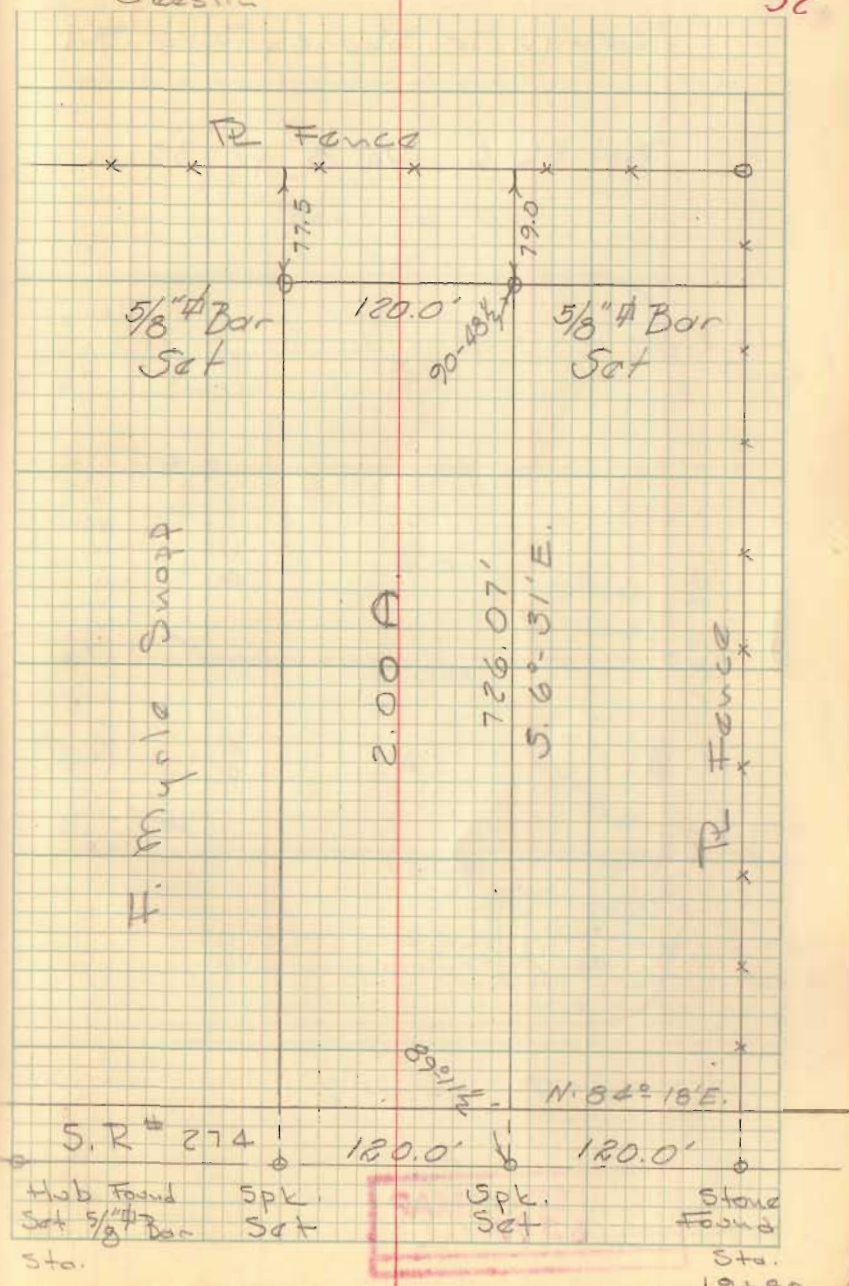 52
Fence
77.5
79.0
5/8"ⱷ Bar
Set
120.0'
90-48½
5/8"ⱷ Bar
Set
F. Myrle Snoff
2.00 A.
726.07'
S. 6°-31' E.
Fence
89°11½
N. 84° 18' E.
S.R # 274
120.0'
120.0'
Hub Found
Set 5/8"ⱷ Bar
Sta.
Spk.
Set
Spk.
Set
Stone
Found
Sta.